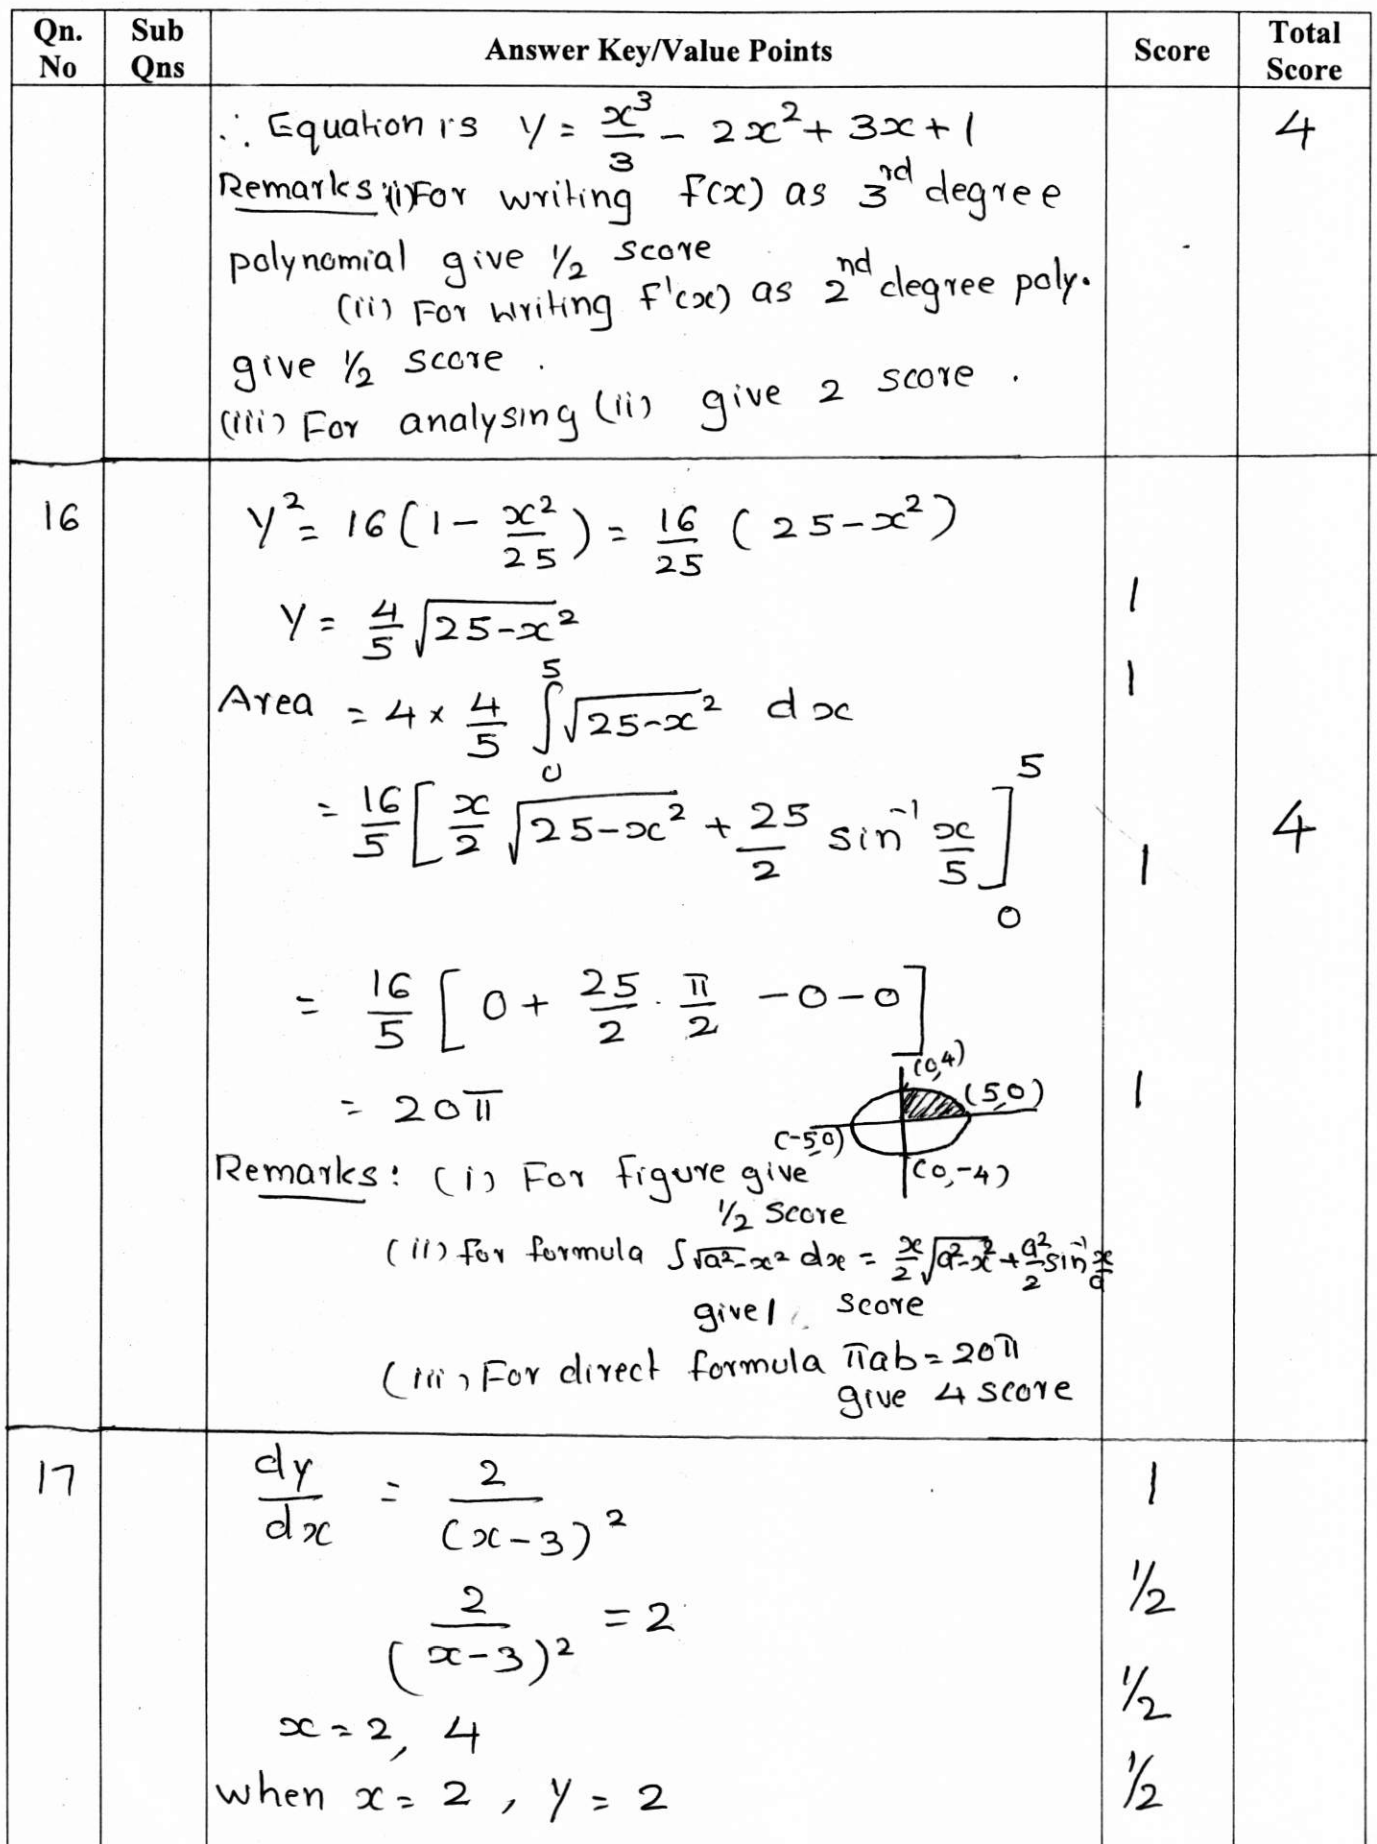 Qn. No | Sub Qns | Answer Key/Value Points | Score | Total Score
∴ Equation is y = x³/3 - 2x² + 3x + 1 | 4
Remarks: (i) For writing f(x) as 3rd degree
polynomial give 1/2 score
(ii) For writing f'(x) as 2nd degree poly.
give 1/2 score .
(iii) For analysing (ii) give 2 score .
16 | y² = 16(1 - x²/25) = 16/25 (25-x²)
y = 4/5 √(25-x²) | 1
Area = 4 × 4/5 ∫₀⁵ √(25-x²) dx | 1
= 16/5 [ x/2 √(25-x²) + 25/2 sin⁻¹ x/5 ]₀⁵ | 1 | 4
= 16/5 [ 0 + 25/2 . π/2 - 0 - 0 ]
(0,4)
= 20π | (5,0) | 1
(-5,0)
Remarks: (i) For figure give (0,-4)
1/2 Score
(ii) for formula ∫√(a²-x²) dx = x/2 √(a²-x²) + a²/2 sin⁻¹ x/a
give 1 score
(iii) For direct formula πab = 20π
give 4 score
17 | dy/dx = 2/(x-3)² | 1
2/(x-3)² = 2 | 1/2
x = 2, 4 | 1/2
when x = 2 , y = 2 | 1/2